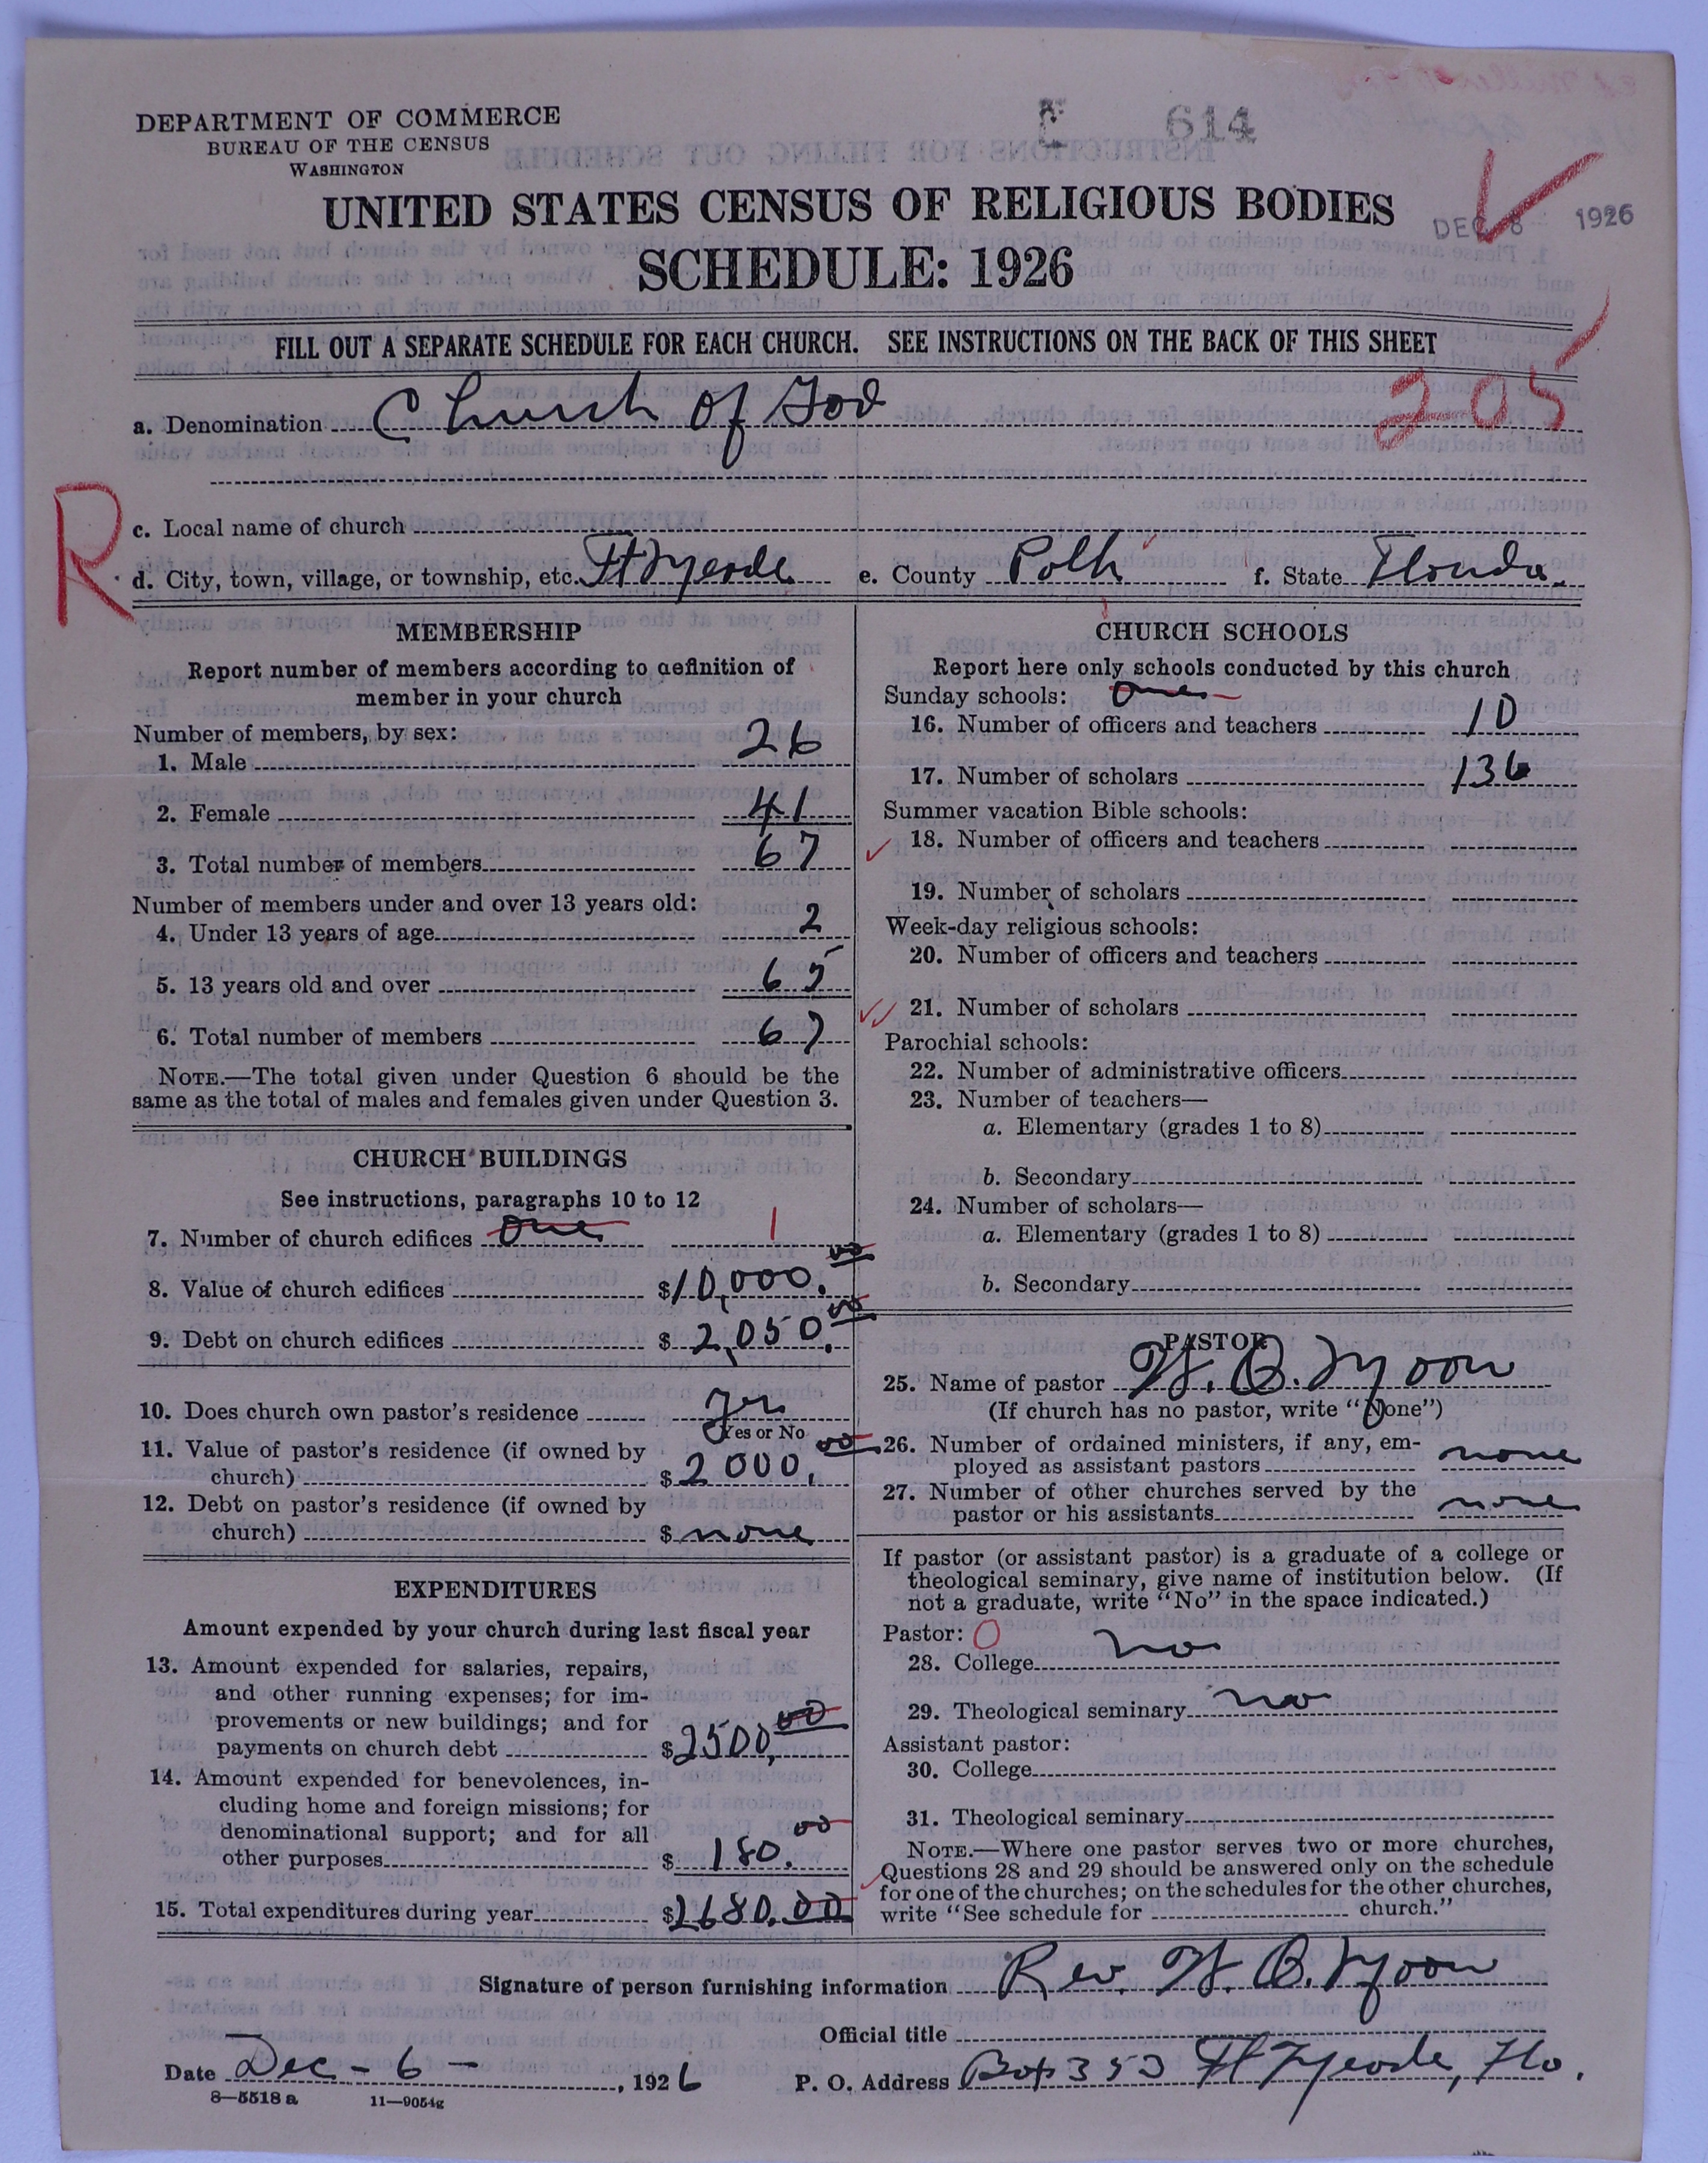 DEPARTMENT OF COMMERCE
BUREAU OF THE CENSUS
WASHINGTON
614
UNITED STATES CENSUS OF RELIGIOUS BODIES
DEC 8 1926
SCHEDULE: 1926
FILL OUT A SEPARATE SCHEDULE FOR EACH CHURCH. SEE INSTRUCTIONS ON THE BACK OF THIS SHEET
205
a. Denomination Church of God
R
c. Local name of church
d. City, town, village, or township, etc. Ft Meade e. County Polk f. State Florida.
MEMBERSHIP
Report number of members according to definition of
member in your church
Number of members, by sex:
1. Male 26
2. Female 41
3. Total number of members 67
Number of members under and over 13 years old:
4. Under 13 years of age 2
5. 13 years old and over 65
6. Total number of members 67
NOTE.—The total given under Question 6 should be the
same as the total of males and females given under Question 3.
CHURCH BUILDINGS
See instructions, paragraphs 10 to 12
7. Number of church edifices one 1
8. Value of church edifices $10,000.00
9. Debt on church edifices $2,050.00
10. Does church own pastor's residence Yes
Yes or No
11. Value of pastor's residence (if owned by
church) $2000.00
12. Debt on pastor's residence (if owned by
church) $ none
EXPENDITURES
Amount expended by your church during last fiscal year
13. Amount expended for salaries, repairs,
and other running expenses; for im-
provements or new buildings; and for
payments on church debt $2500.00
14. Amount expended for benevolences, in-
cluding home and foreign missions; for
denominational support; and for all
other purposes $180.00
15. Total expenditures during year $2680.00
CHURCH SCHOOLS
Report here only schools conducted by this church
Sunday schools: one
16. Number of officers and teachers 10
17. Number of scholars 136
Summer vacation Bible schools:
18. Number of officers and teachers
19. Number of scholars
Week-day religious schools:
20. Number of officers and teachers
21. Number of scholars
Parochial schools:
22. Number of administrative officers
23. Number of teachers—
a. Elementary (grades 1 to 8)
b. Secondary
24. Number of scholars—
a. Elementary (grades 1 to 8)
b. Secondary
PASTOR
25. Name of pastor H. B. Moon
(If church has no pastor, write "None")
26. Number of ordained ministers, if any, em-
ployed as assistant pastors none
27. Number of other churches served by the
pastor or his assistants none
If pastor (or assistant pastor) is a graduate of a college or
theological seminary, give name of institution below. (If
not a graduate, write "No" in the space indicated.)
Pastor: O
28. College no
29. Theological seminary no
Assistant pastor:
30. College
31. Theological seminary
NOTE.—Where one pastor serves two or more churches,
Questions 28 and 29 should be answered only on the schedule
for one of the churches; on the schedules for the other churches,
write "See schedule for church."
Signature of person furnishing information Rev. H. B. Moon
Official title
Date Dec - 6 - , 1926 P. O. Address Box 353 Ft Meade, Flo.
8—5518 a 11—9054g